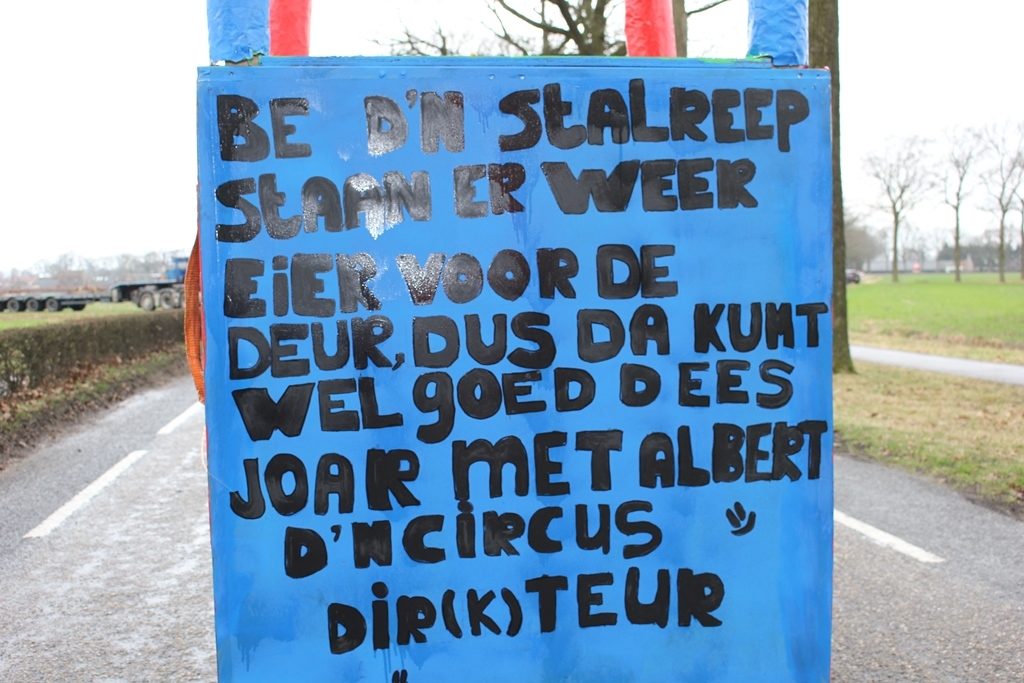 BE D'N StALREEP
StAAN ER WEER
EiER VOOR DE
DEUR, DUS DA KUMT
WEL GOED DEES
JOAR MET ALBERT
D'N CiRCUS
DiR(K)TEUR